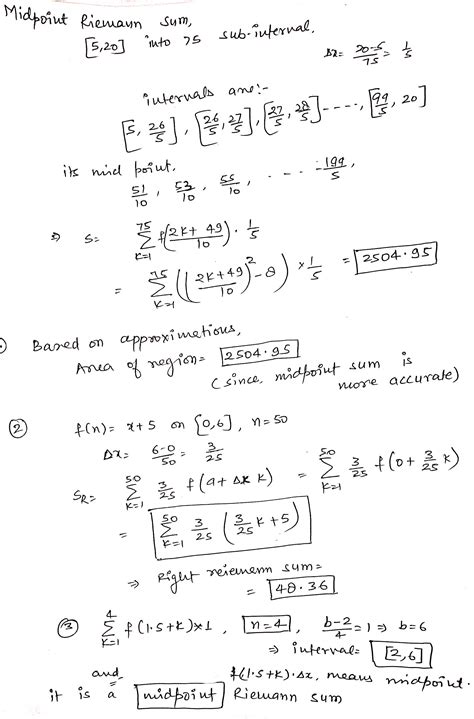 Midpoint Riemann Sum,
[5,20] into 75 sub-interval,
Δx = (20-5)/75 = 1/5
intervals are:-
[5, 26/5], [26/5, 27/5], [27/5, 28/5] ----, [99/5, 20]
its mid point,
51/10, 53/10, 55/10, - - - - 199/5,
⇒ S = Σ_{K=1}^{75} f((2K+49)/10) · 1/5
= Σ_{K=1}^{75} (((2K+49)/10)^2 - 8) × 1/5 = 2504.95
Based on approximations,
Area of region = 2504.95
(since, midpoint sum is
more accurate)
② f(n) = x+5 on [0,6], n=50
Δx = (6-0)/50 = 3/25
S_R = Σ_{K=1}^{50} 3/25 f(a+ΔxK) = Σ_{K=1}^{50} 3/25 f(0+3/25 K)
= Σ_{K=1}^{50} 3/25 (3/25 K+5)
⇒ Right reiemenn sum =
= 48.36
③ Σ_{K=1}^{4} f(1.5+K)×1, n=4, (b-2)/4 = 1 ⇒ b=6
⇒ interval = [2,6]
and f(1.5+K).Δx, means midpoint.
it is a midpoint Riemann sum